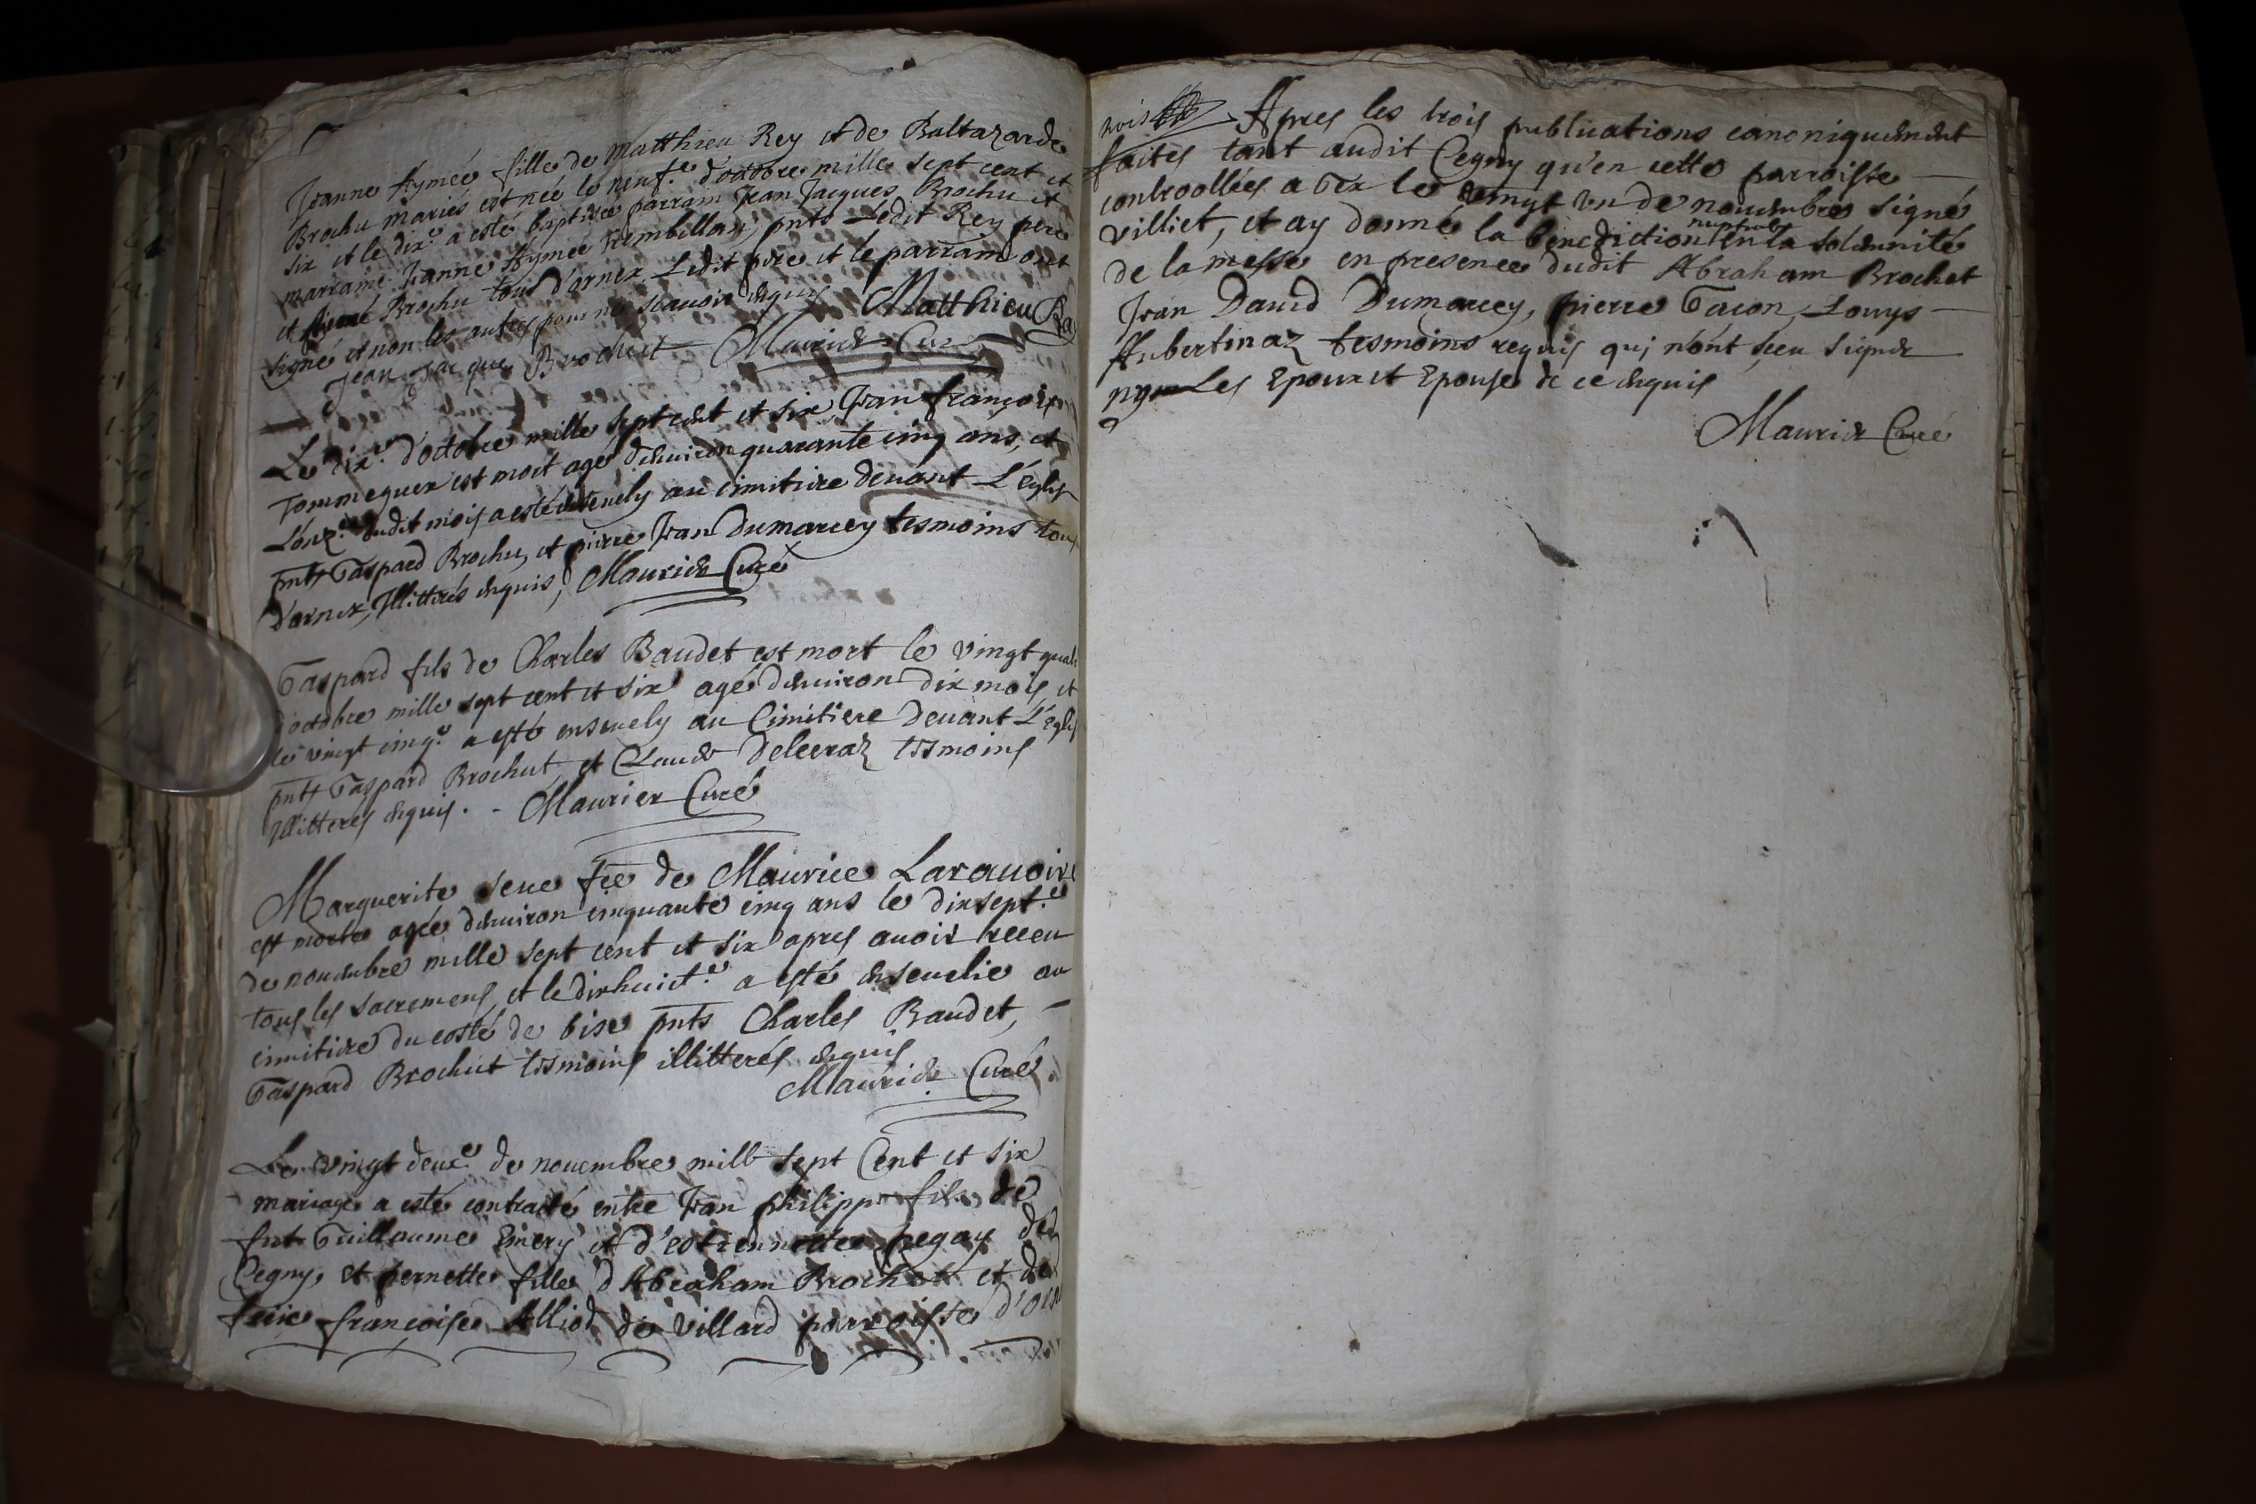 Jeanne Aymée fille de Matthieu Rey et de Baltazarde
Brochu mariés est née le neuf.e d'octobre mille sept cent et
six et le dix.e a esté baptisée parrain Jean Jacques Brochu et
marraine Jeanne Aymée pnts Ledit Rey pere
et Brochu tous d'ornex Ledit pere et le parrain ont
signé et non les autres pour ne scavoir enquis Matthieu Rey
Jean Jacque Brochut Maurier Curé
Le dix.e d'octobre mille sept cent et six Jean françois
Tommeguex est mort agé d'environ quarante cinq ans, et
L'onz.e dudit mois a esté ensevely au cimitiere devant L'église
pnts Gaspard Brochu, et pierre Jean Dumarcey tesmoins tous
d'ornex, Illitterés enquis, Maurier Curé
Gaspard fils de Charles Baudet est mort le vingt quatr
d'octobre mille sept cent et six agé d'environ dix mois, et
le vingt cinq.e a esté ensevely au Cimitiere devant L'église
pnts Gaspard Brochut et Claude Delecraz tesmoins
Illitterés enquis. - Maurier Curé
Marguerite feue de Maurice Laravoire
est morte agée d'environ cinquante cinq ans le dixsept.e
de novembre mille sept cent et six apres avoir receu
tous les sacremens, et le dixhuict.e a esté ensevelie au
cimitiere du costé de bise pnts Charles Baudet, -
Gaspard Brochut tesmoins illitterés enquis
Maurier Curé.
Le vingt deux.e de novembre mille sept Cent et six
mariage a esté contracté entre Jean philippe fils de
fut Guillaume Emery et d'estiennette pegay de
Cegny, et pernette fille d'Abraham Brochet et de
françoise Alliod de villard parroisse d'orn
nois Apres les trois publications canoniquement
faites tant audit Cegny qu'en cette parroisse -
controollées a Gex le vingt un de novembre signé
villiet, et ay donné la benediction nuptiale en la solemnité
de la messe en presence dudit Abraham Brochet
Jean David Dumarcey, pierre Tacon, Louys -
Aubertinaz tesmoins requis qui n'ont sceu signer
ny Les Epoux et Epouse de ce enquis
Maurier Curé